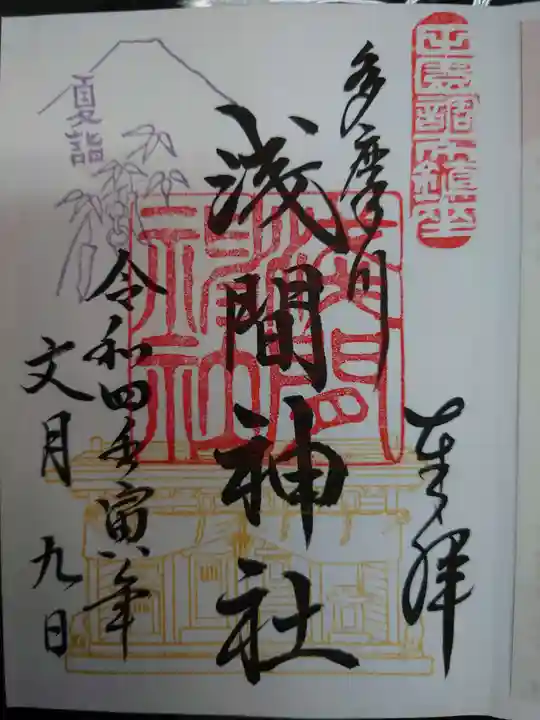 奉拝
多摩川
浅間神社
令和四壬寅年
文月 九日
夏詣